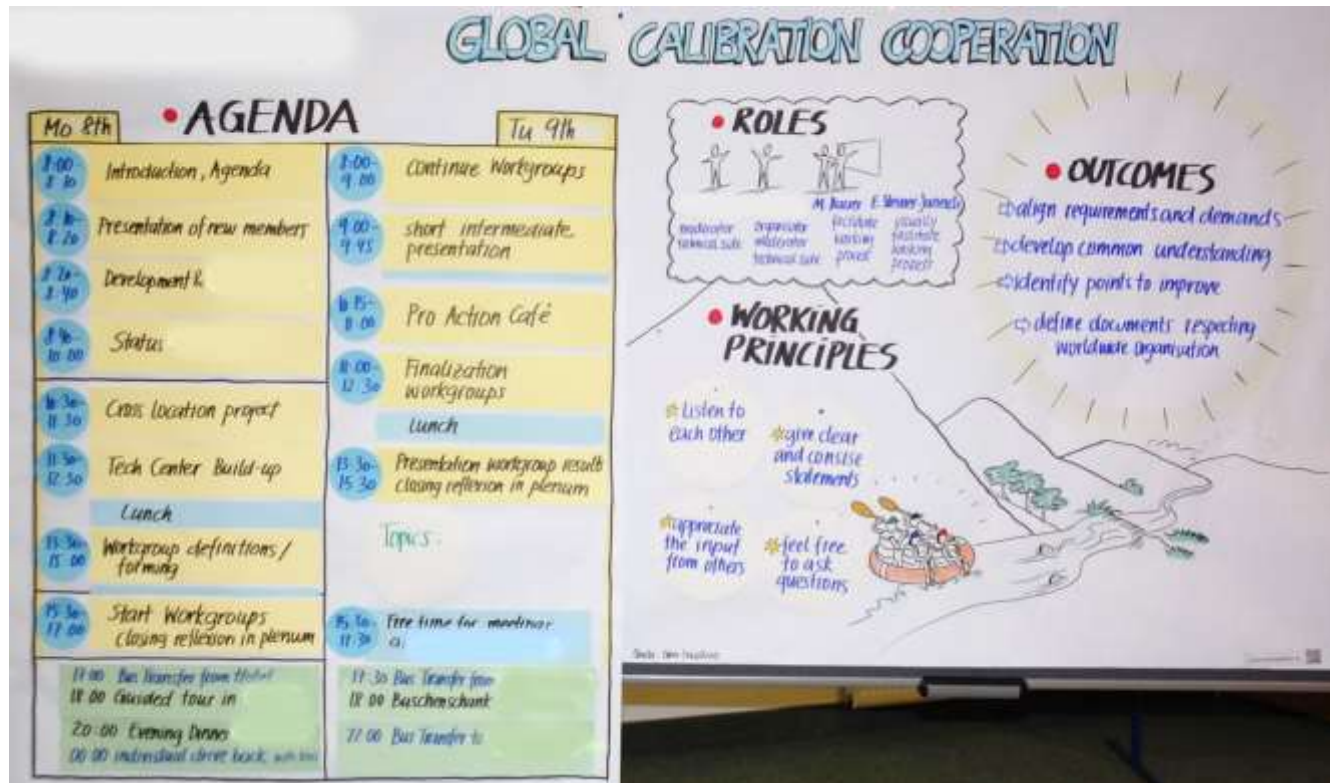 GLOBAL CALIBRATION COOPERATION
• AGENDA
Mo 8th
8:00-
8 30
Introduction, Agenda
Presentation of new members
8 20
Development
8 40
Status
10 00
10 30-
11 30
Cross location project
11 30-
12 30
Tech Center Build-up
Lunch
13 30-
15 00
Workgroup definitions /
forming
15 30-
17 00
Start Workgroups
closing reflexion in plenum
17 00 Bus Transfer from Hotel
18 00 Guided tour in
20:00 Evening Dinner
00 00 individual drive back
Tu 9th
8:00-
9.00
Continue Workgroups
9 00-
9 45
short intermediate
presentation
10 15-
11 00
Pro Action Café
11:00-
12 30
Finalization
workgroups
Lunch
13 30-
15 30
Presentation workgroup result
closing reflexion in plenum
Topics:
15 30-
17 30
Free time for
17 30 Bus Transfer from
18 00 Buschenschank
22 00 Bus Transfer to
• ROLES
M. Bauer
moderator
technical side
organisator
moderator
technical side
facilitate
working
process
visually
facilitate
working
process
• WORKING
PRINCIPLES
Listen to
each other
give clear
and consise
statements
appreciate
the input
from others
feel free
to ask
questions
• OUTCOMES
⇨ align requirements and demands
⇨ develop common understanding
⇨ identify points to improve
⇨ define documents respecting
worldwide organisation